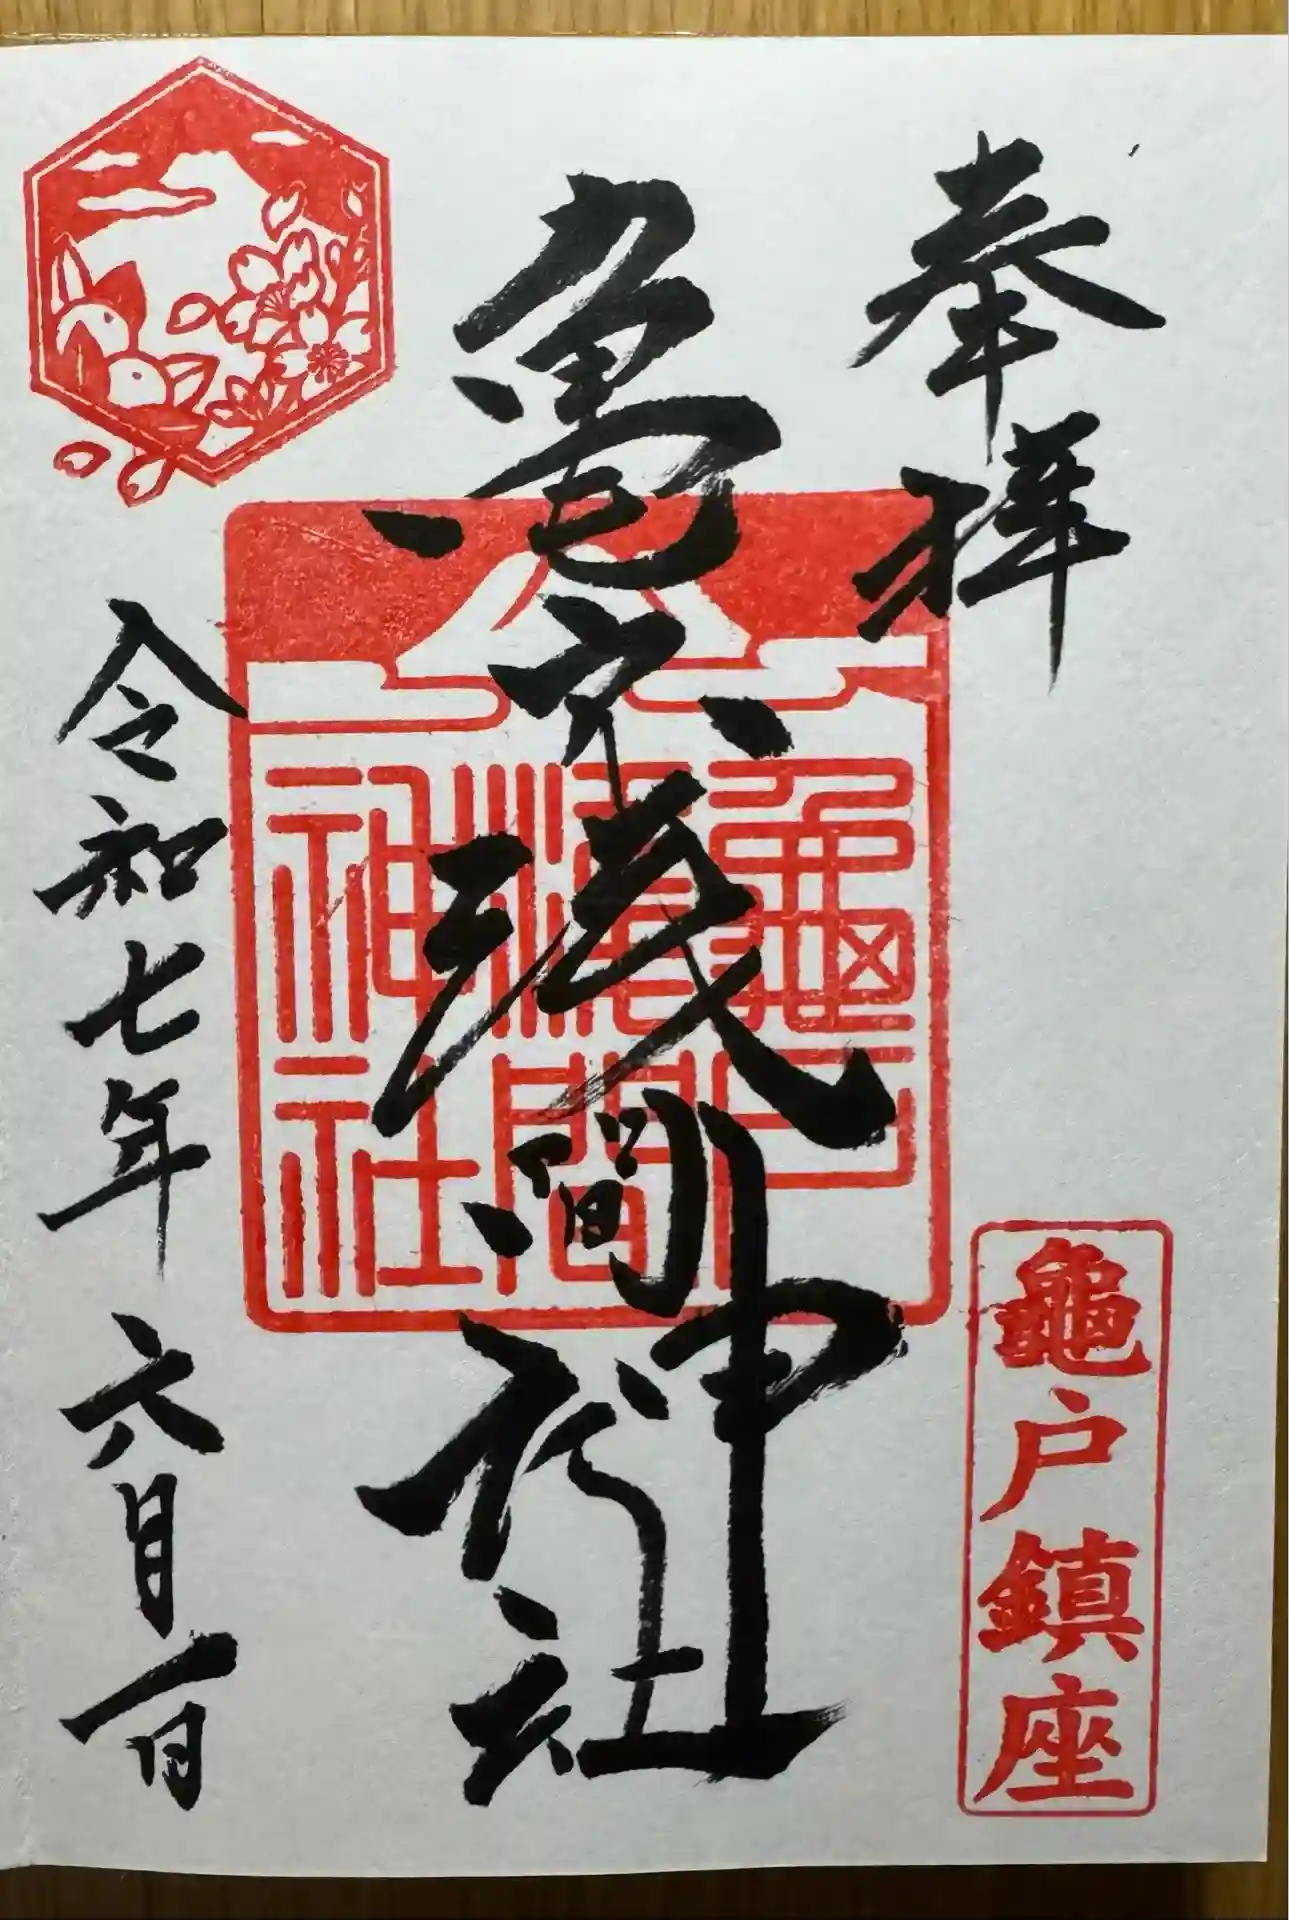 奉拝
龜戸鎮座
亀戸浅間神社
龜戸
淺間
神社
令和七年六月一日